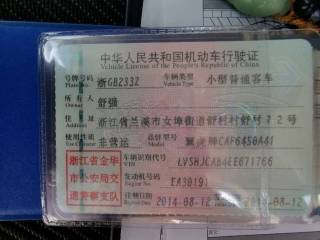 中华人民共和国机动车行驶证
Vehicle License of the People's Republic of China
号牌号码 浙GB2332 车辆类型 小型普通客车
Plate No. Vehicle Type
所有人 舒强
Owner
住址 浙江省兰溪市女埠街道舒村村舒村22号
Address
使用性质 非营运 品牌型号 CAF6450A41
Model
浙江省金华
市公安局交
通警察支队
车辆识别代号
VIN
发动机号码
Engine No.
注册日期 2014-08-12 2014-08-12
Register Date